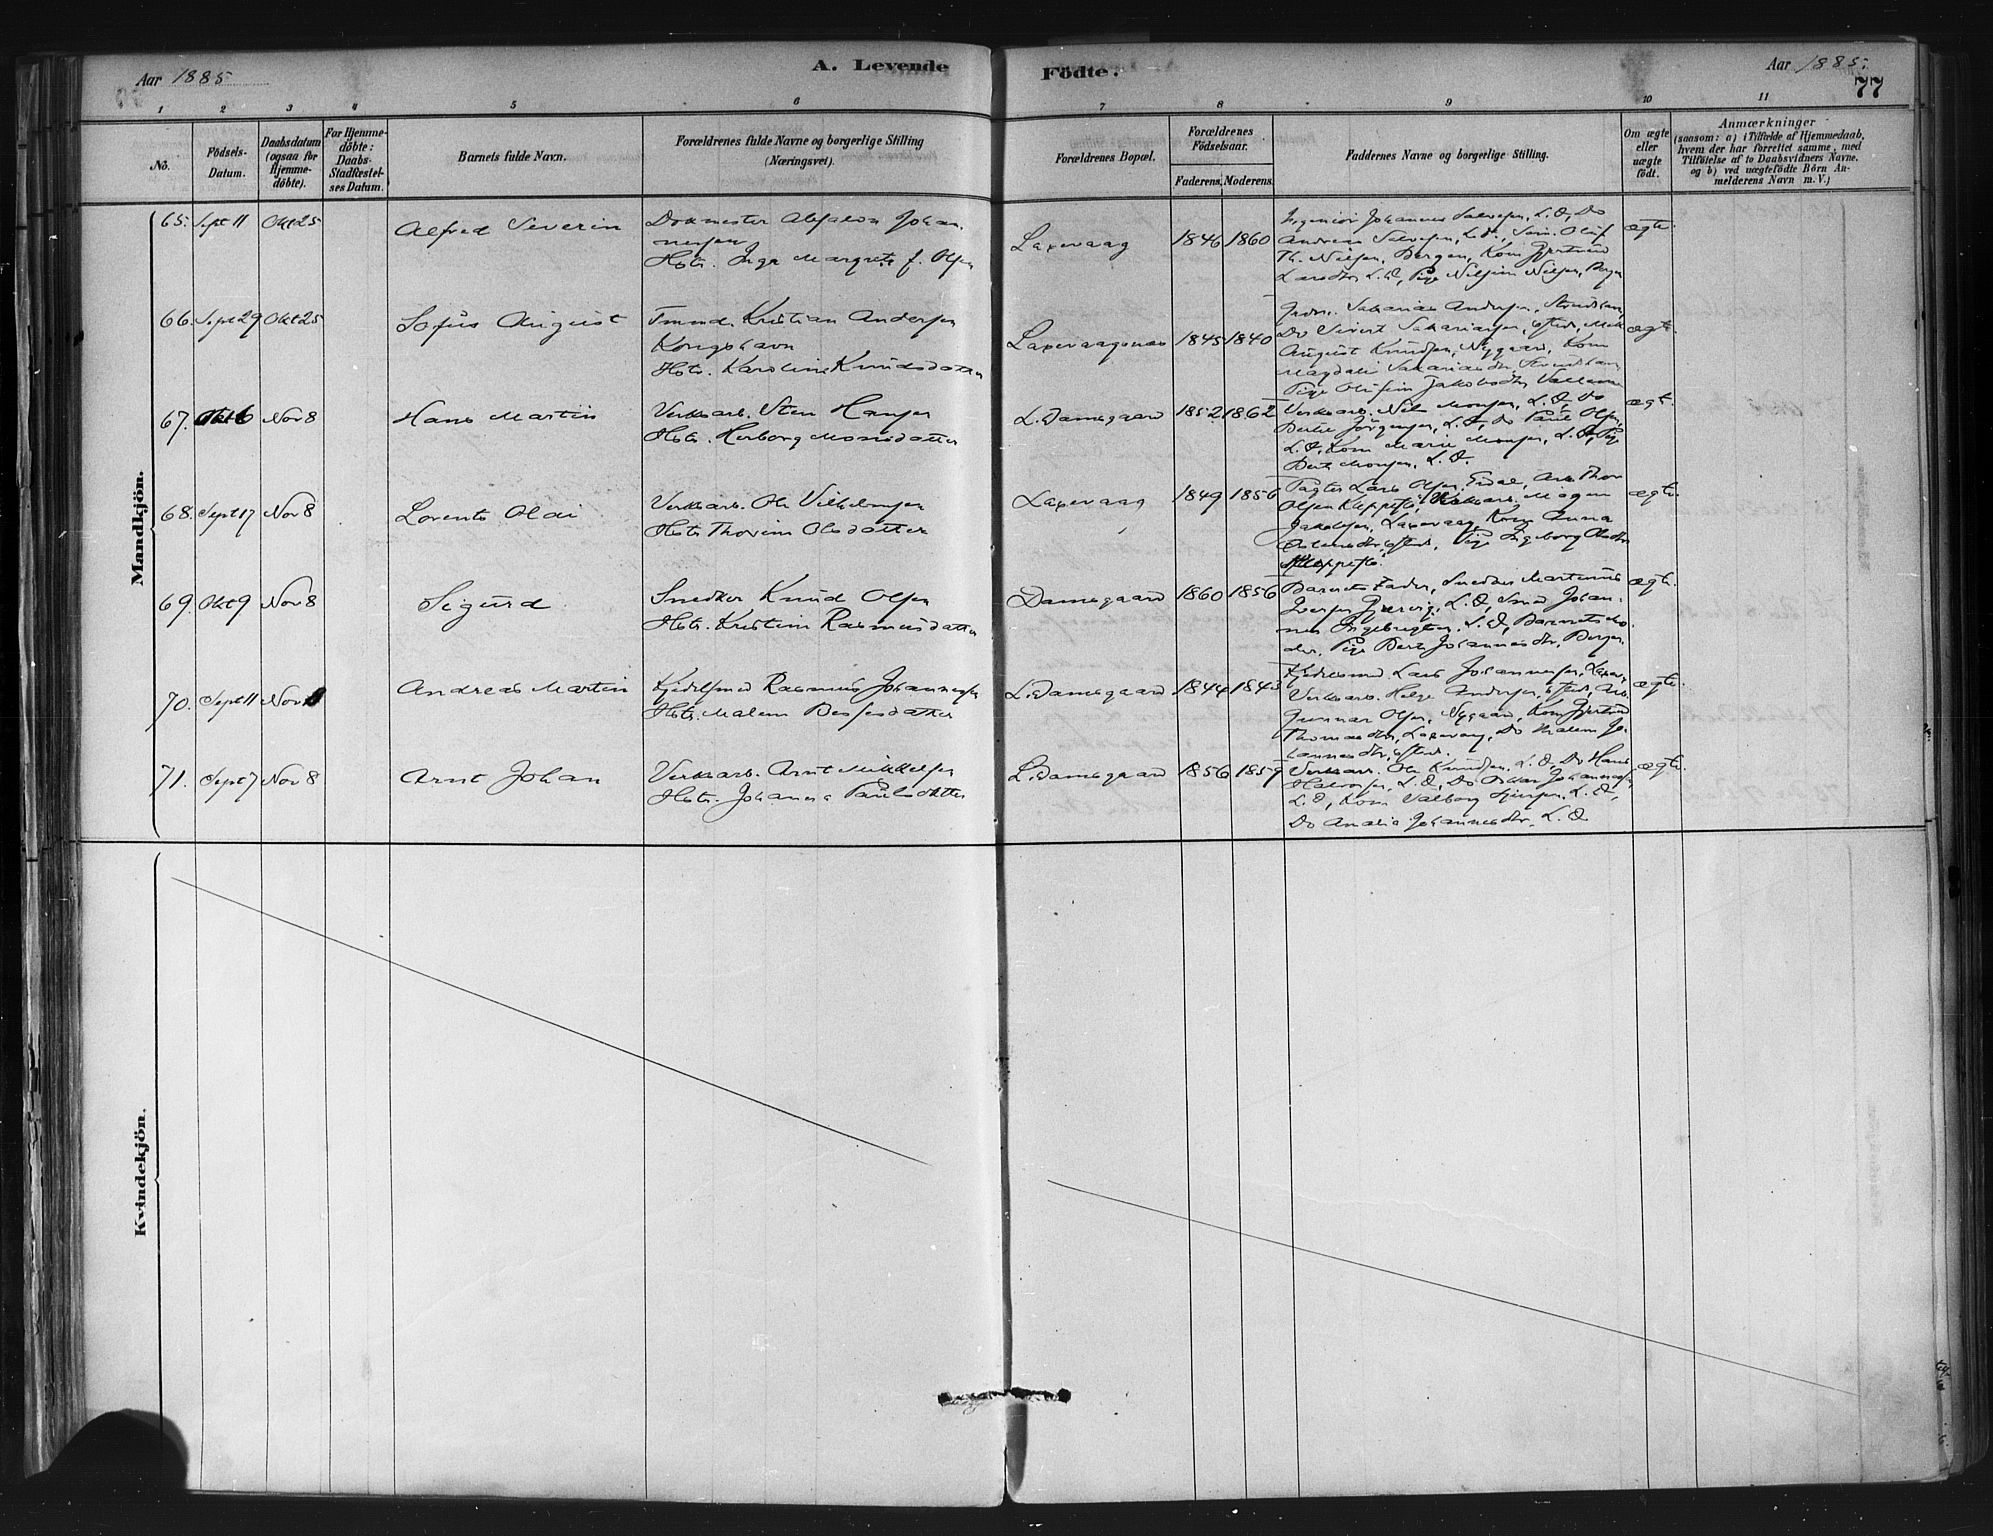 Aar 1885
A. Levende
Födte.
Aar 1885.
77
1 2 3 4 5 6 7 8 9 10 11
No.
Födsels-
Datum.
Daabsdatum
(ogsaa for
Hjemme-
döbte).
For Hjemme-
döbte:
Daabs-
Stadfæstel-
ses Datum.
Barnets fulde Navn.
Forældrenes fulde Navne og borgerlige Stilling
(Næringsvei).
Forældrenes Bopæl.
Forældrenes
Födselsaar.
Faderens. Moderens.
Faddernes Navne og borgerlige Stilling.
Om ægte
eller
uægte
födt.
Anmærkninger
(saasom: a) i Tilfælde af Hjemmedaab,
hvem der har forrettet samme, med
Tilföielse af to Daabsvidners Navne,
og b) ved uægtefödte Börn An-
melderens Navn m. V.)
Mandkjön.
65. Sept 11 Okt 25
Alfred Severin
Dokmester Absalon Johan-
nesen
Hstr. Inga Margrete f. Olsen
Laxevaag
1846 1860
Johannes Salvesen, L. D., Do
Andreas Salvesen, L. D.,
Th. Nielsen, Bergen, Kone Gjertrud
Larsdtr, L. D., Pige Nielsen, Bergen
ægte.
66. Sept 29 Okt 25
Sofus August
Tmmd. Kristian Andersen
Kongshavn
Hstr. Karoline Knudsdatter
Laxevaagsnes
1845 1840
Sakarias Andersen,
Do Sivert Sakariassen,
August Knudsen, Nygaard, Kone
Magdale Sakariasdtr,
Pige Olufine Jakobsdtr,
ægte.
67. Okt 6 Nov 8
Hans Martin
Verksarb. Sten Hansen
Hstr. Herborg Monsdatter
L. Damsgaard
1852 1862
Verksarb. Nils Monsen, L. D., Do
Bertel Jörgensen, L. D., Do Paul Olsen,
L. D., Kone Marie Monsen, L. D., Pige
Berta Monsen, L. D.
ægte.
68. Sept 17 Nov 8
Lorents Olai
Verksarb. Ole Vilhelmsen
Hstr. Thorine Olsdatter
Laxevaag
1849 1856
Lars Olsen, Eidal, Arb. Thor
Olsen Kleppestö, Verksarb. Mogens
Jakobsen, Laxevaag, Kone Anna
Pige Ingeborg Olsdtr
Kleppestö
ægte.
69. Okt 9 Nov 8
Sigurd
Snedker Knud Olsen
Hstr. Kristine Rasmusdatter
Damsgaard
1860 1856
Barnets Fader, Snedker Martinus
Iversen L. D., Smed Johan-
nes Ingebrigtsen, L. D., Barnets Mo-
der, Pige Berta Johannesdtr, Bergen
ægte.
70. Sept 11 Nov 8
Andreas Martin
Kjedelsmed Rasmus Johannessen
Hstr. Malene
L. Damsgaard
1844 1843
Kjedelsmed Lars Johannessen, Laxev.,
Verksarb. Helge Andersen, Arb.
Gunnar Olsen, Nygaard, Kone Gjertrud
Thomasdtr, Laxevaag, Do Malene Jo-
hannesdtr,
ægte.
71. Sept 7 Nov 8
Arnt Johan
Verksarb. Arnt Mikkelsen
Hstr. Johanna Paulsdatter
L. Damsgaard
1856 1859
Verksarb. Ole Knudsen, L. D., Do Hans
Halvorsen, L. D., Do Oskar Johannessen,
L. D., Kone Valborg L. D.,
Do Analia Johannesdtr, L. D.
ægte.
Kvindekjön.